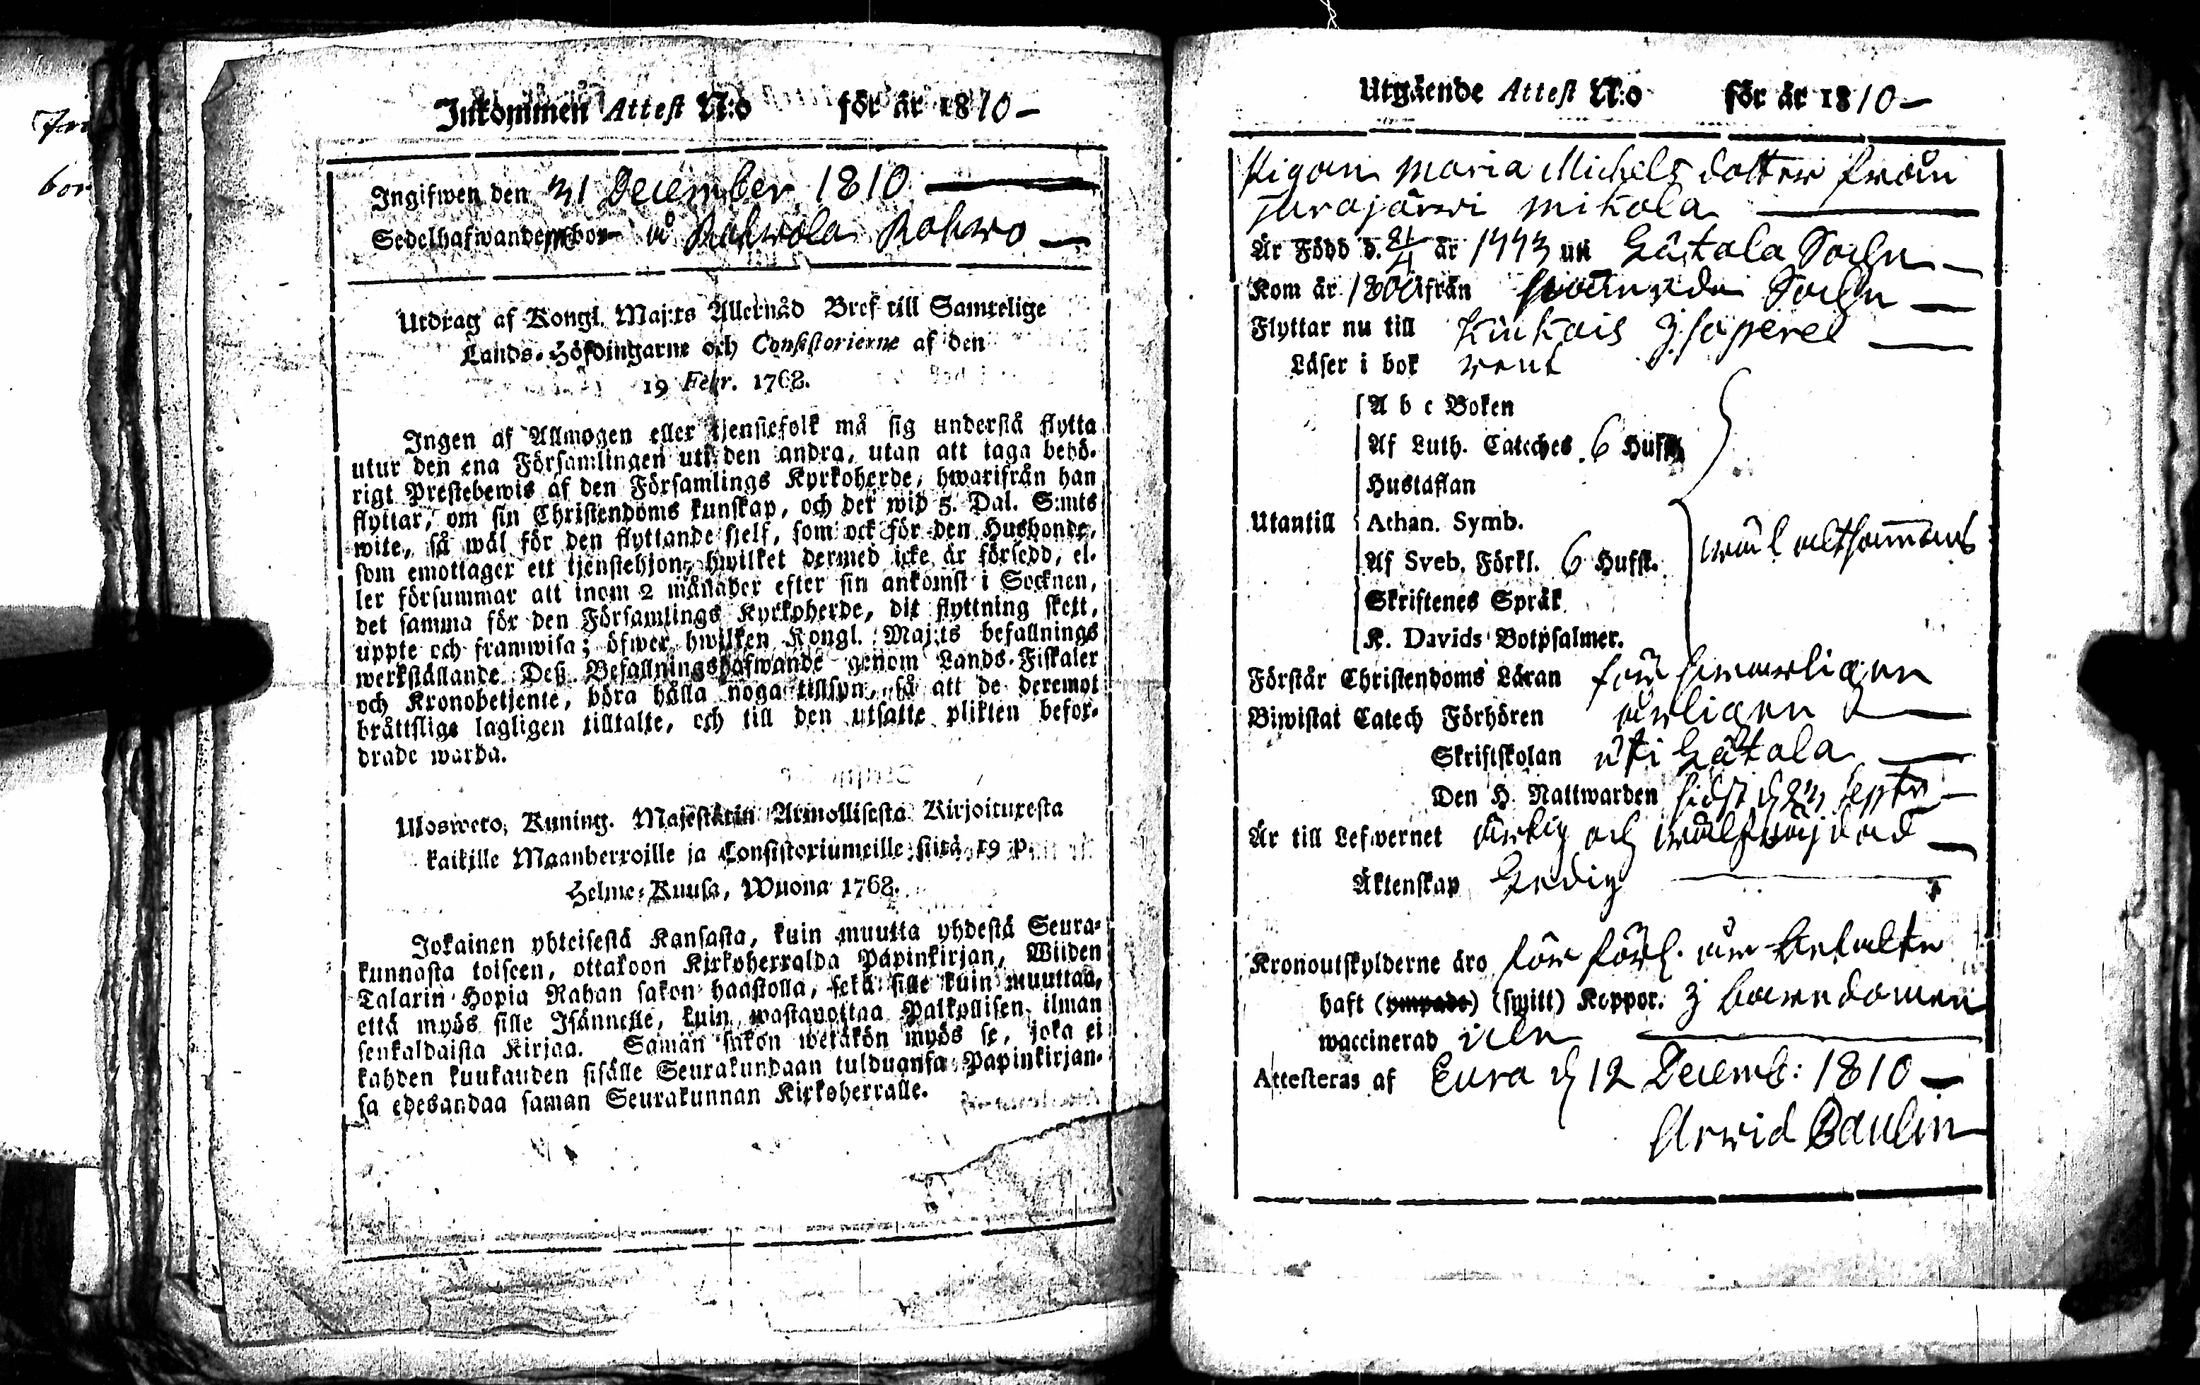 Inkommen Attest N:o för år 1810 —
Ingifwen den 31 December 1810
Sedelhafwanden bor å Rahwola Rahwo
Utdrag af Kongl. Maj:ts Allernåd Bref till Samtelige
Lands-Höfdingarne och Consistorierne af den
19 Febr. 1768.
Ingen af Allmogen eller tjenstefolk må sig understå flytta
utur den ena Församlingen uti den andra, utan att taga behö-
rigt Prestebewis af den Församlings Kyrkoherde, hwarifrån han
flyttar, om sin Christendoms kunskap, och der wid 5. Dal. S:mts
wite, så wäl för den flyttande sjelf, som ock för den Husbonde,
som emottager ett tjenstehjon, hwilket dermed icke är försedd, el-
ler försummar att inom 2 månader efter sin ankomst i Socknen,
det samma för den Församlings Kyrkoherde, dit flyttning skett,
uppte och framwisa; öfwer hwilken Kongl. Maj:ts befallnings
werkställande Deß Befallningshafwande genom Lands-Fiskaler
och Kronobetjente, böra hålla noga tillsyn, så att de deremot
bråttslige lagligen tilltalte, och till den utsatte plikten befor-
drade warda.
Ulosweto, Kuning. Majestätin Armollisesta Kirjoituxesta
kaikille Maanherroille ja Consistoriumeille siitä 19 p.
Helme-Kuusa, Wuona 1768.
Jokainen yhteisestä Kansasta, kuin muutta yhdestä Seura-
kunnasta toiseen, ottakoon Kirkoherralda Papinkirjan, Wiiden
Talarin Hopia Rahan sakon haastolla, sekä sille kuin muuttaa,
että myös sille Isännelle, kuin wastanottaa Palkollisen ilman
senkaldaista Kirjaa. Saman sakon wetäkön myös se, joka ei
kahden kuukauden sisälle Seurakundaan tulduansa Papinkirjan-
sa edesandaa saman Seurakunnan Kirkoherralle.
Utgående Attest N:o för år 1810 —
Pigan Maria Michels dotter från
Turajärwi Mikola
Är Född d. 21/4 år 1773 uti Hästola Sochn
Kom år 1800 från Sochn
Flyttar nu till Kiukais Capell
Läser i bok rent
A b c Boken
Af Luth. Cateches 6 Hufst.
Hustaflan
Utantill Athan. Symb.
Af Sveb. Förkl. 6 Hufst. wäl altsammans
Skriftenes Språk
K. Davids Botpsalmer.
Förstår Christendoms Läran förswarligen
Biwistat Catech Förhören årligen
Skriftskolan uti
Den H. Nattwarden sidst d. 23 Septr
Är till Lefwernet ärlig och wälfräjdad
Äktenskap Ledig
Kronoutskylderne äro för förl. år betalte
haft (ympade) (smitt) Koppor. i barndomen
waccinerad icke
Attesteras af Eura d 12 Decemb: 1810 —
Arvid Paulin